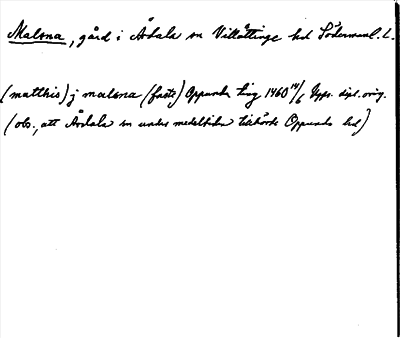 Malsna, gård i Årdala sn Villåttinge hd Södermanl. L.
(matthis) j malsna (faste) Oppunda ting 1460 14/6 Upps. dipl. orig.
(obs., att Årdala sn under medeltiden tillhörde Oppunda hd)